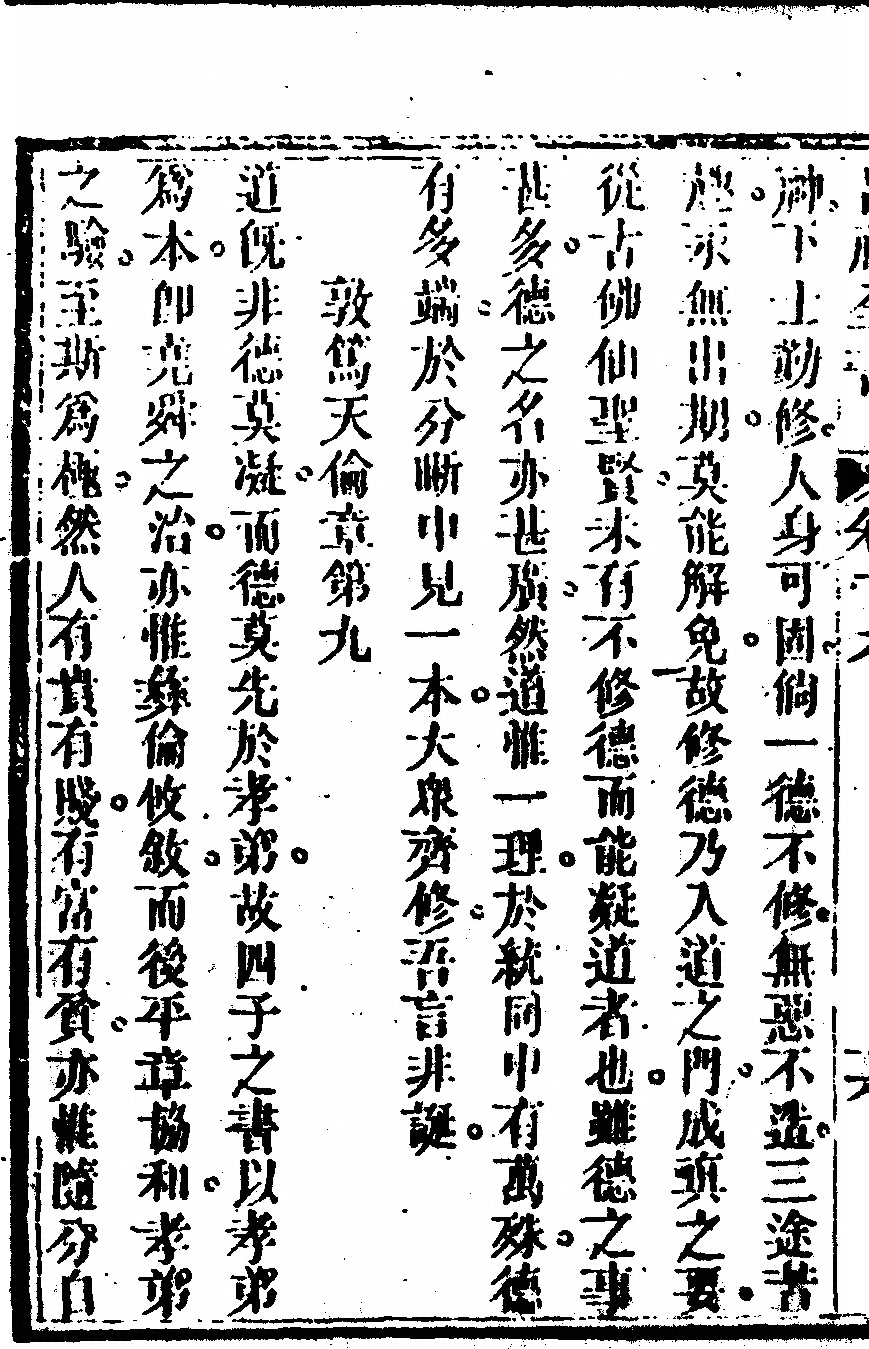 下士勤修人身可固倘一德不修無惡不造三途苦
趣永無出期莫能解免故修德乃入道之門成眞之要
從古佛仙聖賢未有不修德而能凝道者也雖德之事
甚多德之名亦甚廣然道惟一理於統同中有萬殊德
有多端於分晰中見一本大衆齊修吾言非誕
敦篤天倫章第九
道旣非德莫凝而德莫先於孝弟故四子之書以孝弟
爲本卽堯舜之治亦惟彝倫攸敘而後平章協和孝弟
之驗至斯爲極然人有貴有賤有富有貧亦惟隨分自